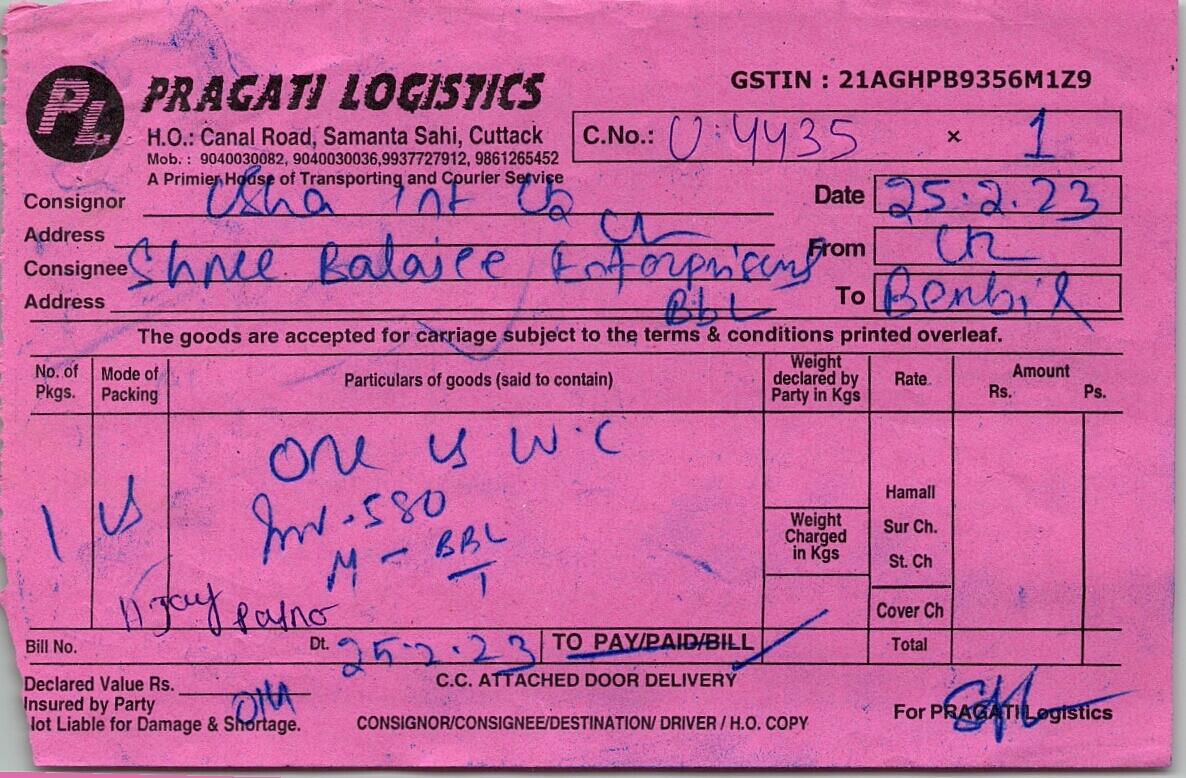 PL PRAGATI LOGISTICS
GSTIN : 21AGHPB9356M1Z9
H.O.: Canal Road, Samanta Sahi, Cuttack
C.No.: U:4435 × 1
Mob. : 9040030082, 9040030036,9937727912, 9861265452
A Primier House of Transporting and Courier Service
Consignor Usha Int
Date 25.2.23
Address
From
Consignee Shree Balajee
Address BBL
To
The goods are accepted for carriage subject to the terms & conditions printed overleaf.
No. of Pkgs. Mode of Packing Particulars of goods (said to contain) Weight declared by Party in Kgs Rate Amount Rs. Ps.
One W.C
Inv-580
M - BBL
1
Hamall
Weight Charged in Kgs
Sur Ch.
St. Ch
Cover Ch
Bill No. Dt. 25.2.23 TO PAY/PAID/BILL Total
Declared Value Rs. C.C. ATTACHED DOOR DELIVERY
Insured by Party
Not Liable for Damage & Shortage. CONSIGNOR/CONSIGNEE/DESTINATION/ DRIVER / H.O. COPY
For PRAGATI Logistics